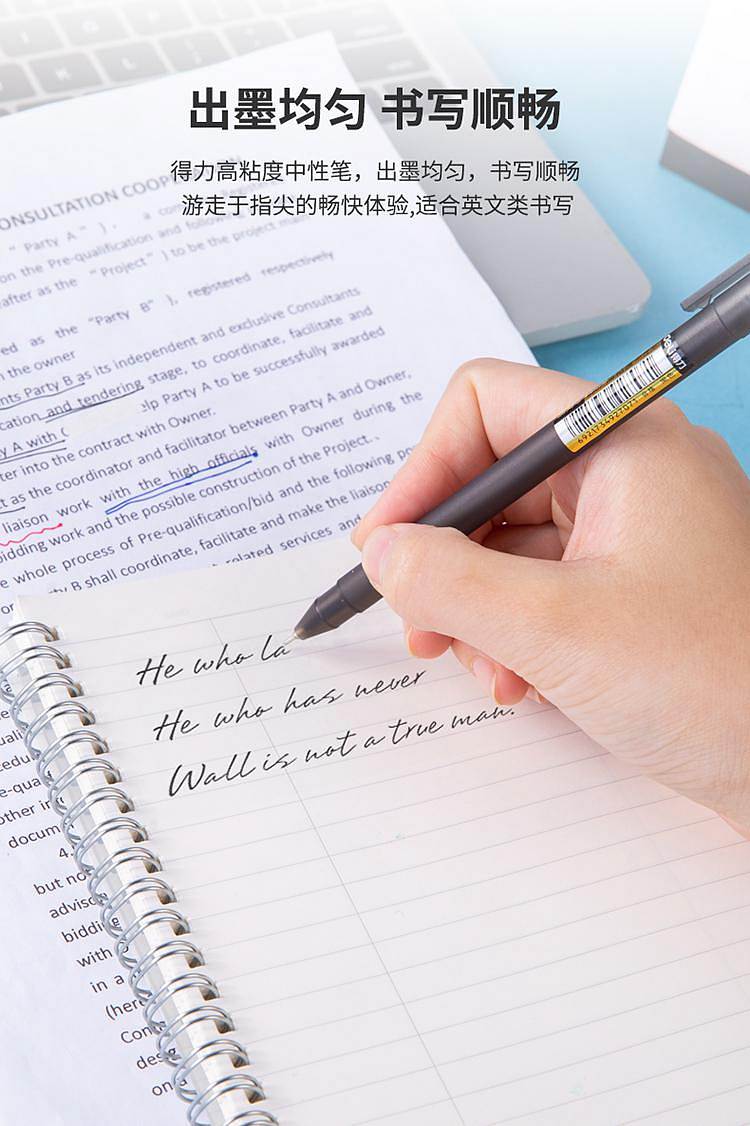 出墨均匀 书写顺畅
得力高粘度中性笔，出墨均匀，书写顺畅
游走于指尖的畅快体验,适合英文类书写
ONSULTATION COOP
" Party A " ) ,
on the Pre-qualification and following
after as the "Project" ) to be the project
ed as the "Party B" ), registered respectively
n the owner
nts Party B as its independent and exclusive Consultants
cation and tendering stage, to coordinate, facilitate and
y A with ( elp Party A to be successfully awarded
ter into the contract with Owner.
t as the coordinator and facilitator between Party A and Owner,
liaison work with the high officials with Owner during the
bidding work and the possible construction of the Project.
e whole process of Pre-qualification/bid and the following
ty B shall coordinate, facilitate and make the liaison
related services and
得力
6921734927071
He who la
He who has never
Wall is not a true man.
other in
docum
4.
but no
advisor
biddi
with
in a
(her
Con
desig
on